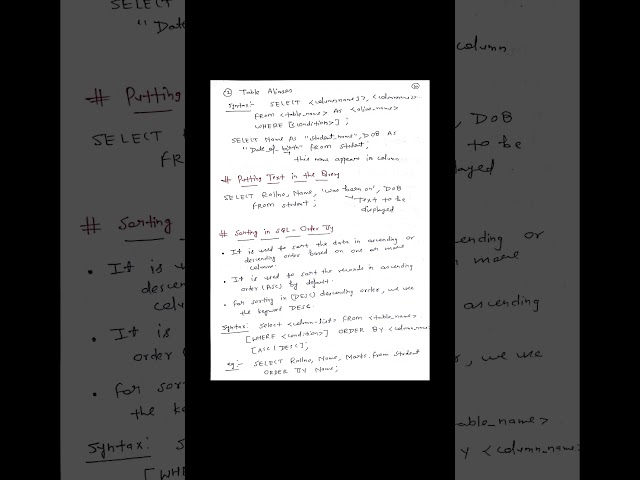 ② Table Aliases
Syntax:- SELECT <columnname1>, <columnname>
FROM <table_name> AS <alias_name>
WHERE [<condition>];
SELECT Name As "student_name", DOB As
"Date_of_birth" from student;
this name appears in column.
# Putting Text in the Query
SELECT Rollno, Name, 'was born on', DOB
from student;
Text to be
displayed
# Sorting in SQL - Order By
• It is used to sort the data in ascending or
descending order based on one or more
column.
• It is used to sort the records in ascending
order (ASC) by default.
• for sorting in (DESC) descending order, we use
the keyword DESC.
Syntax: Select <column-list> FROM <table_name>
[WHERE <condition>] ORDER BY <column_name>
[ASC | DESC];
eg:- SELECT Rollno, Name, Marks from student
ORDER BY Name;